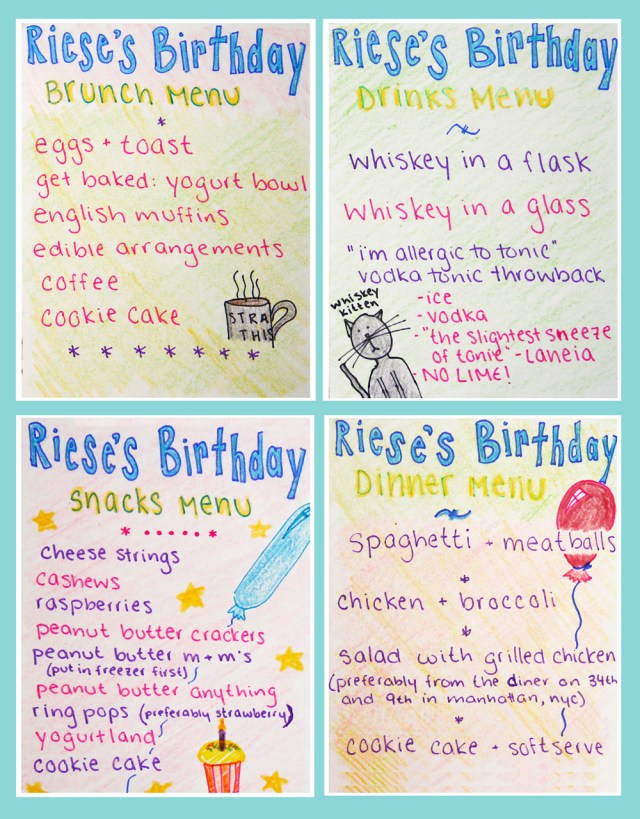 Riese's Birthday
Brunch Menu
eggs + toast
get baked: yogurt bowl
english muffins
edible arrangements
coffee
cookie cake
STRA
THIS
Riese's Birthday
Drinks Menu
whiskey in a flask
whiskey in a glass
"i'm allergic to tonic"
vodka tonic throwback
whiskey
kitten
-ice
-vodka
-"the slightest sneeze
of tonic" -Laneia
-NO LIME!
Riese's Birthday
Snacks Menu
cheese strings
cashews
raspberries
peanut butter crackers
peanut butter m+m's
(put in freezer first)
peanut butter anything
ring pops (preferably strawberry)
yogurtland
cookie cake
Riese's Birthday
Dinner Menu
spaghetti + meatballs
chicken + broccoli
salad with grilled chicken
(preferably from the diner on 34th
and 9th in manhattan, nyc)
cookie cake + softserve